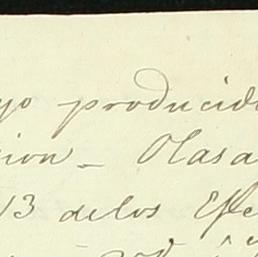 yo producid
cion - Olasa
13 delos Efe